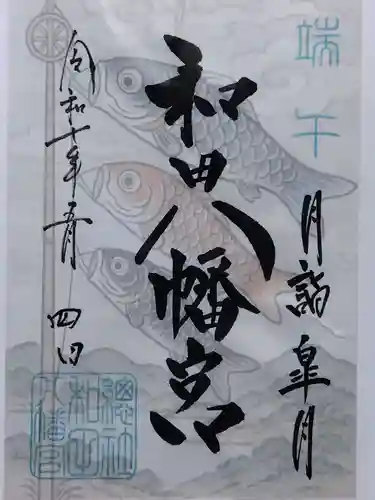 端午
月詣 皐月
和田八幡宮
令和七年五月四日
總社
和田
八幡宮